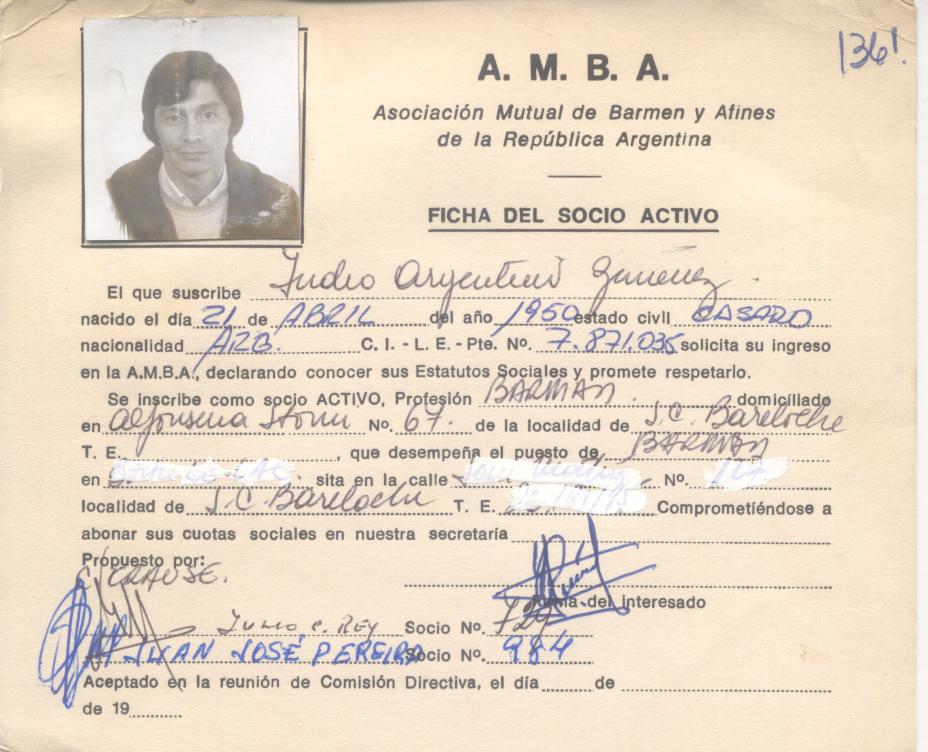 1361
A. M. B. A.
Asociación Mutual de Barmen y Afines
de la República Argentina
FICHA DEL SOCIO ACTIVO
El que suscribe Indio Argentino Gimenez
nacido el día 21 de ABRIL del año 1950 estado civil CASADO
nacionalidad ARG. C. I. - L. E. - Pte. No. 7.871.035 solicita su ingreso
en la A.M.B.A., declarando conocer sus Estatutos Sociales y promete respetarlo.
Se inscribe como socio ACTIVO, Profesión BARMAN. domiciliado
en Alfonsina Storni No. 67. de la localidad de S.C. Bariloche
T. E. , que desempeña el puesto de BARMAN
en sita en la calle No.
localidad de S.C. Bariloche T. E. Comprometíéndose a
abonar sus cuotas sociales en nuestra secretaría
Propuesto por:
CRAUSE.
Firma del interesado
JULIO C. REY Socio No. 729
JUAN JOSÉ PEREIRA Socio No. 984
Aceptado en la reunión de Comisión Directiva, el día de
de 19